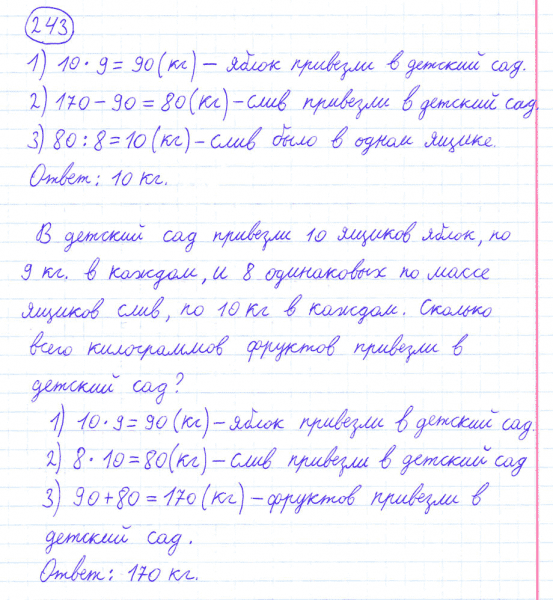 243
1) 10 · 9 = 90 (кг) – яблок привезли в детский сад.
2) 170 – 90 = 80 (кг) – слив привезли в детский сад.
3) 80 : 8 = 10 (кг) – слив было в одном ящике.
Ответ: 10 кг.
В детский сад привезли 10 ящиков яблок, по
9 кг. в каждом, и 8 одинаковых по массе
ящиков слив, по 10 кг в каждом. Сколько
всего килограммов фруктов привезли в
детский сад?
1) 10 · 9 = 90 (кг) – яблок привезли в детский сад.
2) 8 · 10 = 80 (кг) – слив привезли в детский сад
3) 90 + 80 = 170 (кг) – фруктов привезли в
детский сад.
Ответ: 170 кг.